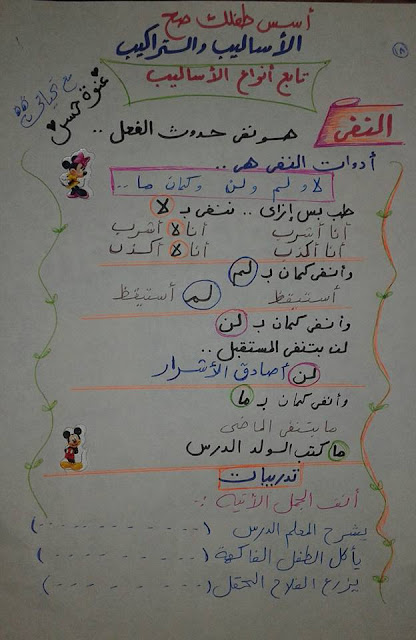 أسس طفلك صح
الأساليب والتراكيب
١٨
تابع أنواع الأساليب
مع تحياتي
غنوة حسن
النفى
هو نفى حدوث الفعل ..
أدوات النفى هى ..
لا و لم و لن وكمان ما ..
طب بس إزاى .. ننفى بـ لا
أنا أشرب أنا لا أشرب
أنا أكذب أنا لا أكذب
وأنفى كمان بـ لم
أستيقظ لم أستيقظ
وأنفى كمان بـ لن
لن بتنفى المستقبل ..
لن أصادق الأشرار
وأنفى كمان بـ ما
ما بتنفى الماضى
ما كتب الولد الدرس
تدريبات
أنف الجمل الآتية :-
يشرح المعلم الدرس (- - - - - - - - - -)
يأكل الطفل الفاكهة (- - - - - - - - - -)
يزرع الفلاح الحقل (- - - - - - - - - -)